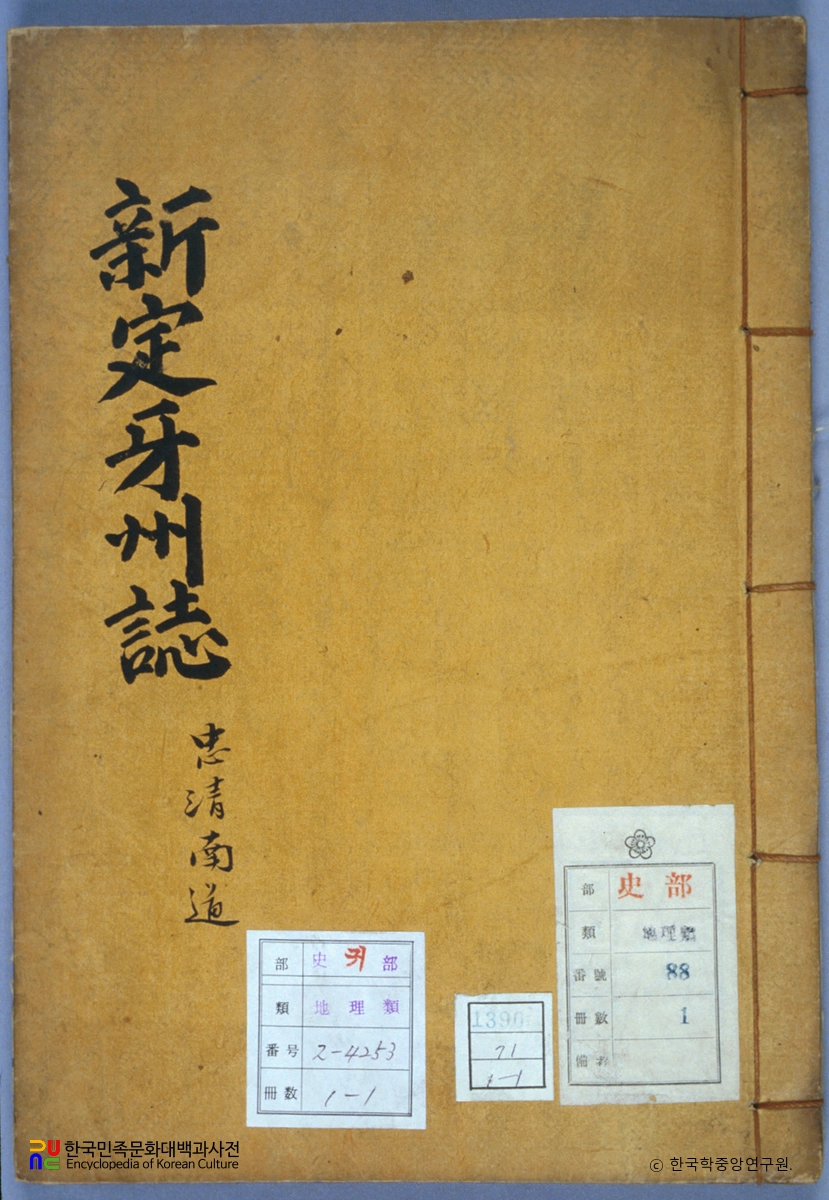 新定牙州誌
忠清南道
部 史部
類 地理類
番號 88
冊數 1
備考
部 史 귀 部
類 地理類
番号 2-4253
冊數 1-1
1390
71
1-1
한국민족문화대백과사전
Encyclopedia of Korean Culture
© 한국학중앙연구원.